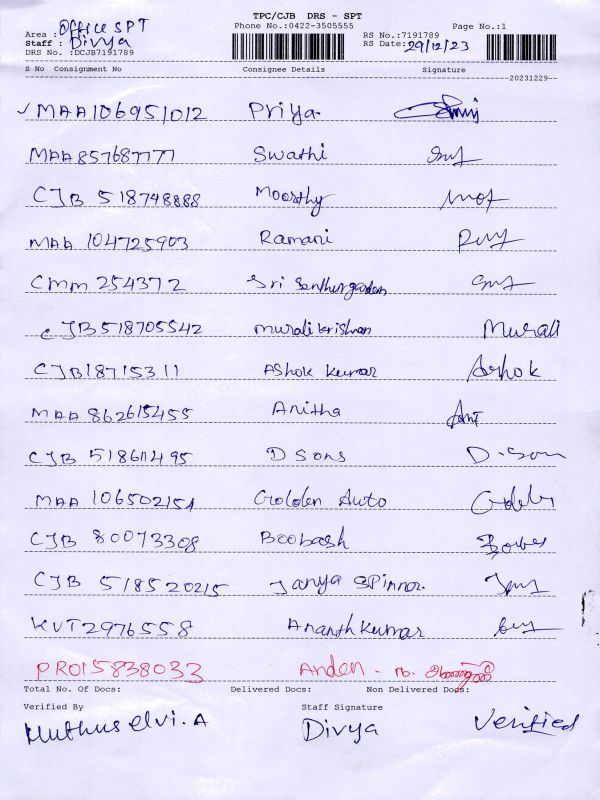 TPC/CJB DRS - SPT
Area : Office SPT Phone No.:0422-3505555 RS No.:7191789 Page No.:1
Staff : Divya RS Date: 29/12/23
DRS No. :DCJB7191789
S No Consignment No Consignee Details Signature
20231229
✓MAA106951012 Priya
MAA857687777 Swathi
CJB 518748888 Moorthy
MAA 104725903 Ramani
CMM 254372 Sri Senthurgarden
CJB518705542 Muralikrishnan Murali
CJB18715311 Ashok kumar Ashok
MAA 862615455 Anitha Ani
CJB 518611495 D Sons D-Son
MAA 106502154 Golden Auto
CJB 80073308 Boobash
CJB 518520215 Janya Spinnar.
KVT2976558 Ananthkumar
PRO15838033 Anden -
Total No. Of Docs: Delivered Docs: Non Delivered Docs:
Verified By Staff Signature
Muthuselvi.A Divya Verified